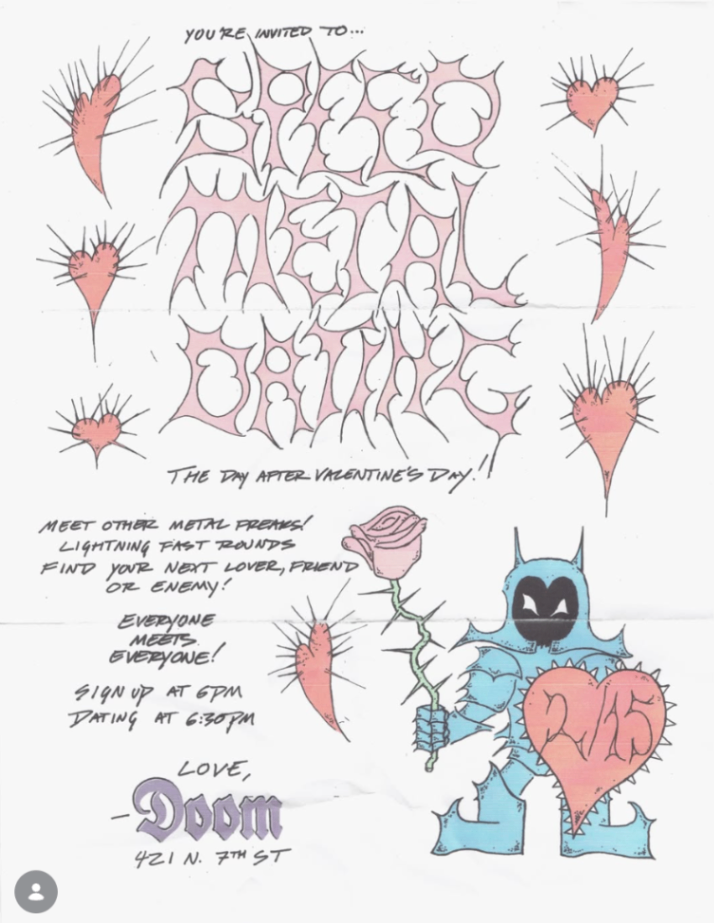 YOU'RE INVITED TO...
SPEED
METAL
DATING
THE DAY AFTER VALENTINE'S DAY!
MEET OTHER METAL FREAKS!
LIGHTNING FAST ROUNDS
FIND YOUR NEXT LOVER, FRIEND
OR ENEMY!
EVERYONE
MEETS
EVERYONE!
SIGN UP AT 6PM
DATING AT 6:30PM
2/15
LOVE,
-Doom
421 N. 7TH ST